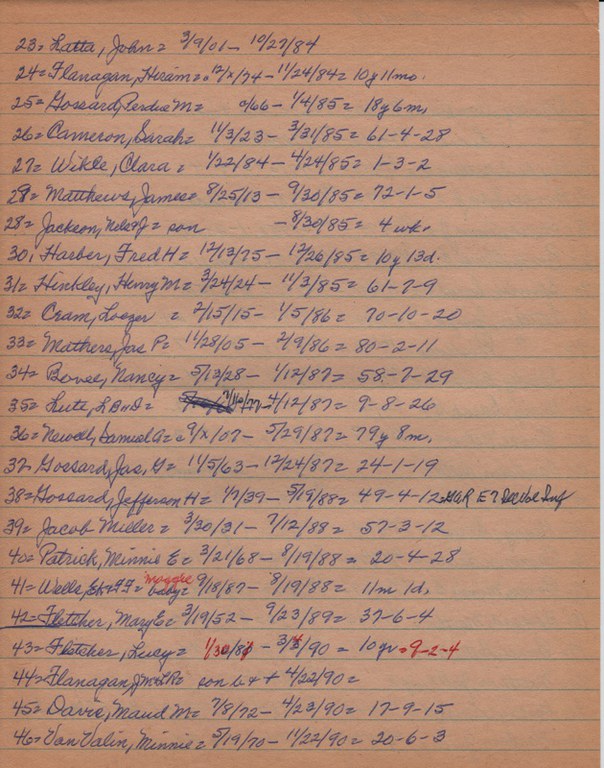 23= Latta, John = 3/9/01 - 10/27/84
24= Flanagan, Hiram = 12/x/74 - 11/24/84 = 10y 11mo.
25= Gossard, Perdie M = 0/66 - 1/4/85 = 18y 6m,
26= Cameron, Sarah = 11/3/23 - 3/31/85 = 61-4-28
27= Wikle, Clara = 1/22/84 - 4/24/85 = 1-3-2
29= Matthews, James = 8/25/13 - 9/30/85 = 72-1-5
28= Jackson, J = son - 8/30/85 = 4 wk.
30, Harber, Fred H = 12/13/75 - 12/26/85 = 10y 13d.
31= Hinkley, Henry M = 3/24/24 - 11/3/85 = 61-7-9
32= Cram, = 2/15/15 - 1/5/86 = 70-10-20
33= Mathers, Jas P = 11/28/05 - 2/9/86 = 80-2-11
34= Bovee, Nancy = 5/13/28 - 1/12/87 = 58-7-29
35= Lute, L B = 7/16/77 - 4/12/87 = 9-8-26
36= Newell, Samuel A = 9/x/07 - 5/29/87 = 79y 8m,
37= Gossard, Jas, G = 11/5/63 - 12/24/87 = 24-1-19
38= Gossard, Jefferson H = 1/7/39 - 5/19/88 = 49-4-12 = GAR E 7 Inf
39= Jacob Miller = 3/30/31 - 7/12/88 = 57-3-12
40= Patrick, Minnie E = 3/21/68 - 8/19/88 = 20-4-28
41= Wells, = Maggie baby = 9/18/87 - 8/19/88 = 11m 1d,
42= Fletcher, Mary E = 3/19/52 - 9/23/89 = 37-6-4
43= Fletcher, Lucy = 1/30/81 - 3/4/90 = 10yr = 9-2-4
44= Flanagan, son b & + 4/22/90 =
45= Davis, Maud M = 7/8/72 - 4/23/90 = 17-9-15
46= Van Valin, Minnie = 5/19/70 - 11/22/90 = 20-6-3